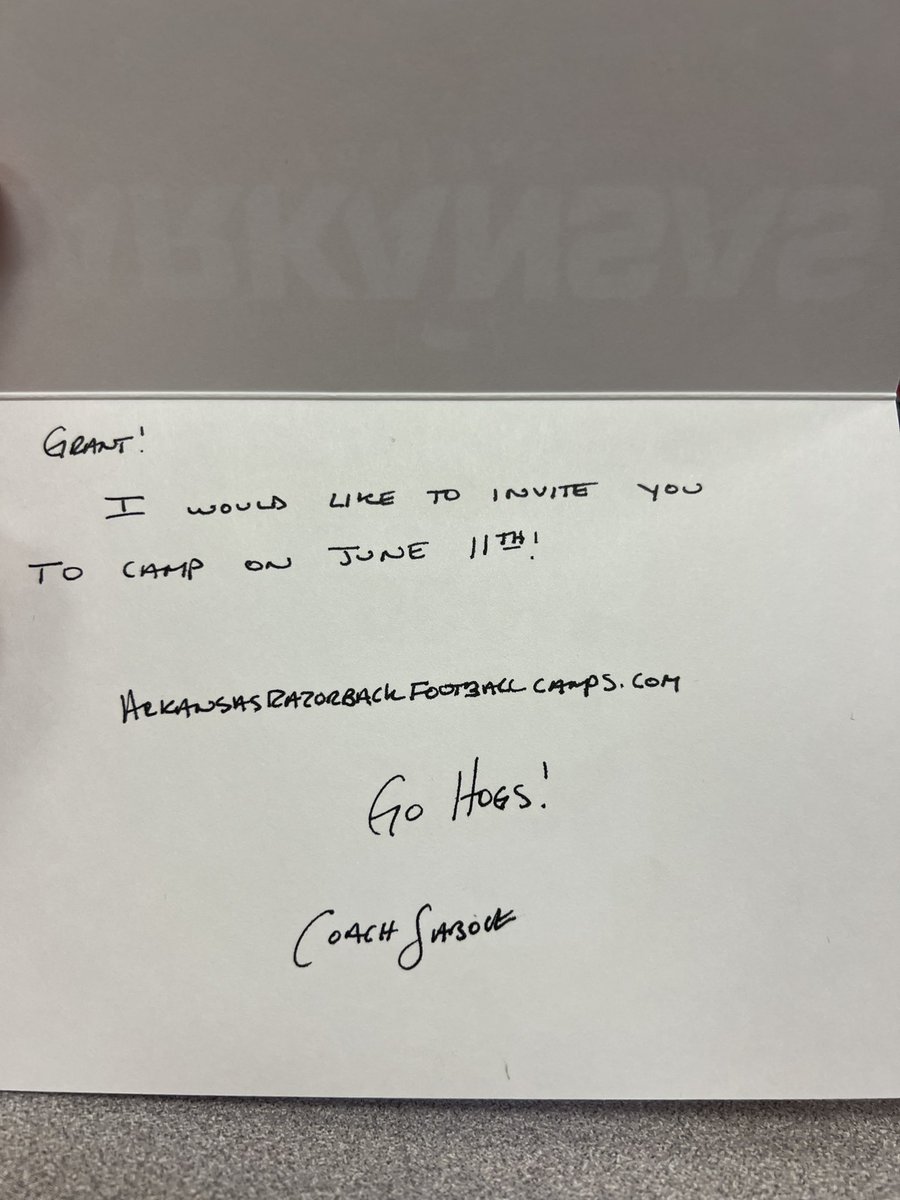 ARKANSAS
GRANT!
I WOULD LIKE TO INVITE YOU
TO CAMP ON JUNE 11TH!
ARKANSASRAZORBACKFOOTBALLCAMPS.COM
GO HOGS!
COACH